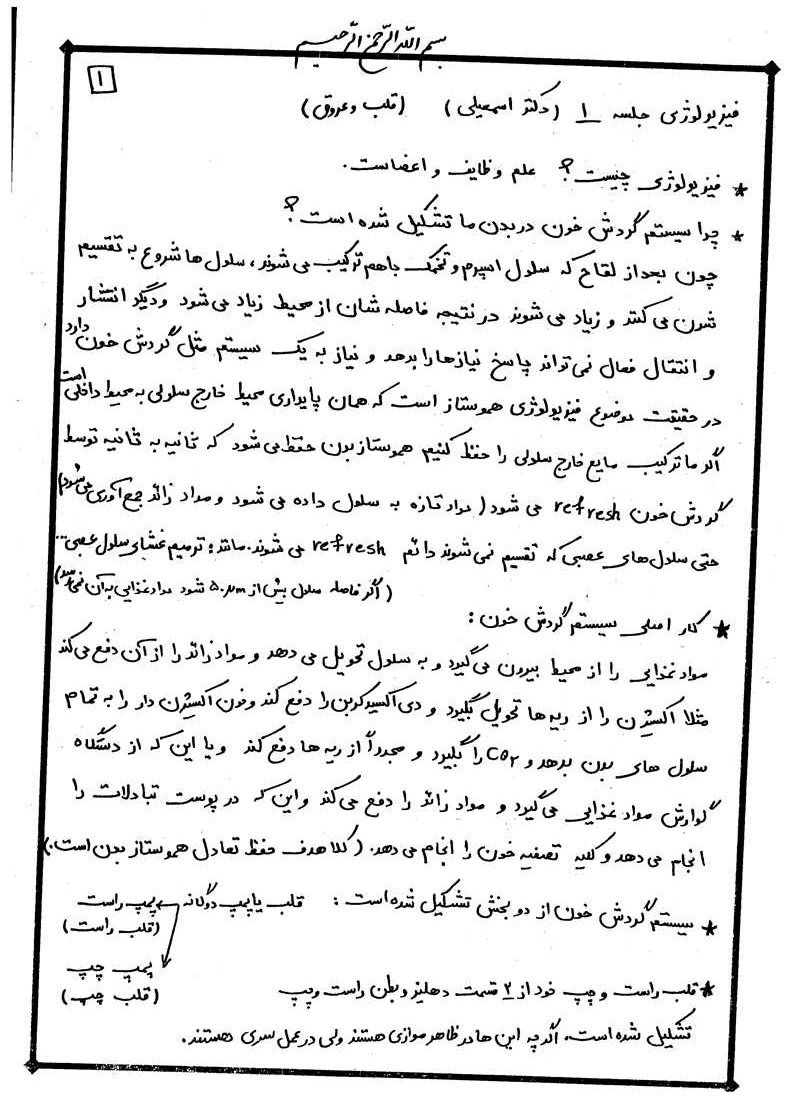 بسم الله الرحمن الرحیم
۱
فیزیولوژی جلسه ۱ (دکتر اسمعیلی) (قلب و عروق)
* فیزیولوژی چیست؟ علم وظایف و اعضاست.
* چرا سیستم گردش خون در بدن ما تشکیل شده است؟
چون بعد از لقاح که سلول اسپرم و تخمک با هم ترکیب می شوند، سلول ها شروع به تقسیم
شدن می کنند و زیاد می شوند در نتیجه فاصله شان از محیط زیاد می شود و دیگر انتشار
و انتقال فعال نمی تواند پاسخ نیازها را بدهد و نیاز به یک سیستم مثل گردش خون دارد
در حقیقت موضوع فیزیولوژی هموستاز است که همان پایداری محیط خارج سلولی به محیط داخلی است
اگر ما ترکیب مایع خارج سلولی را حفظ کنیم هموستاز بدن حفظ می شود که ثانیه به ثانیه توسط
گردش خون refresh می شود (مواد تازه به سلول داده می شود و مواد زائد جمع آوری می شود)
حتی سلول های عصبی که تقسیم نمی شوند دائم refresh می شوند. مانند؛ ترمیم غشای سلول عصبی..
(اگر فاصله سلول بیش از ۵۰μm شود مواد غذایی به آن نمی رسد)
* کار اصلی سیستم گردش خون:
مواد غذایی را از محیط بیرون می گیرد و به سلول تحویل می دهد و مواد زائد را از آن دفع می کند
مثلا اکسیژن را از ریه ها تحویل بگیرد و دی اکسید کربن را دفع کند و خون اکسیژن دار را به تمام
سلول های بدن بدهد و CO۲ را بگیرد و مجدداً از ریه ها دفع کند و یا این که از دستگاه
گوارش مواد غذایی می گیرد و مواد زائد را دفع می کند و این که در پوست تبادلات را
انجام می دهد و کلیه تصفیه خون را انجام می دهد. (کلا هدف حفظ تعادل هموستاز بدن است.)
* سیستم گردش خون از دو بخش تشکیل شده است: قلب یا پمپ دوگانه پمپ راست
(قلب راست)
پمپ چپ
(قلب چپ)
* قلب راست و چپ خود از ۲ قسمت دهلیز و بطن راست و چپ
تشکیل شده است. اگر چه این ها در ظاهر موازی هستند ولی در عمل سری هستند.